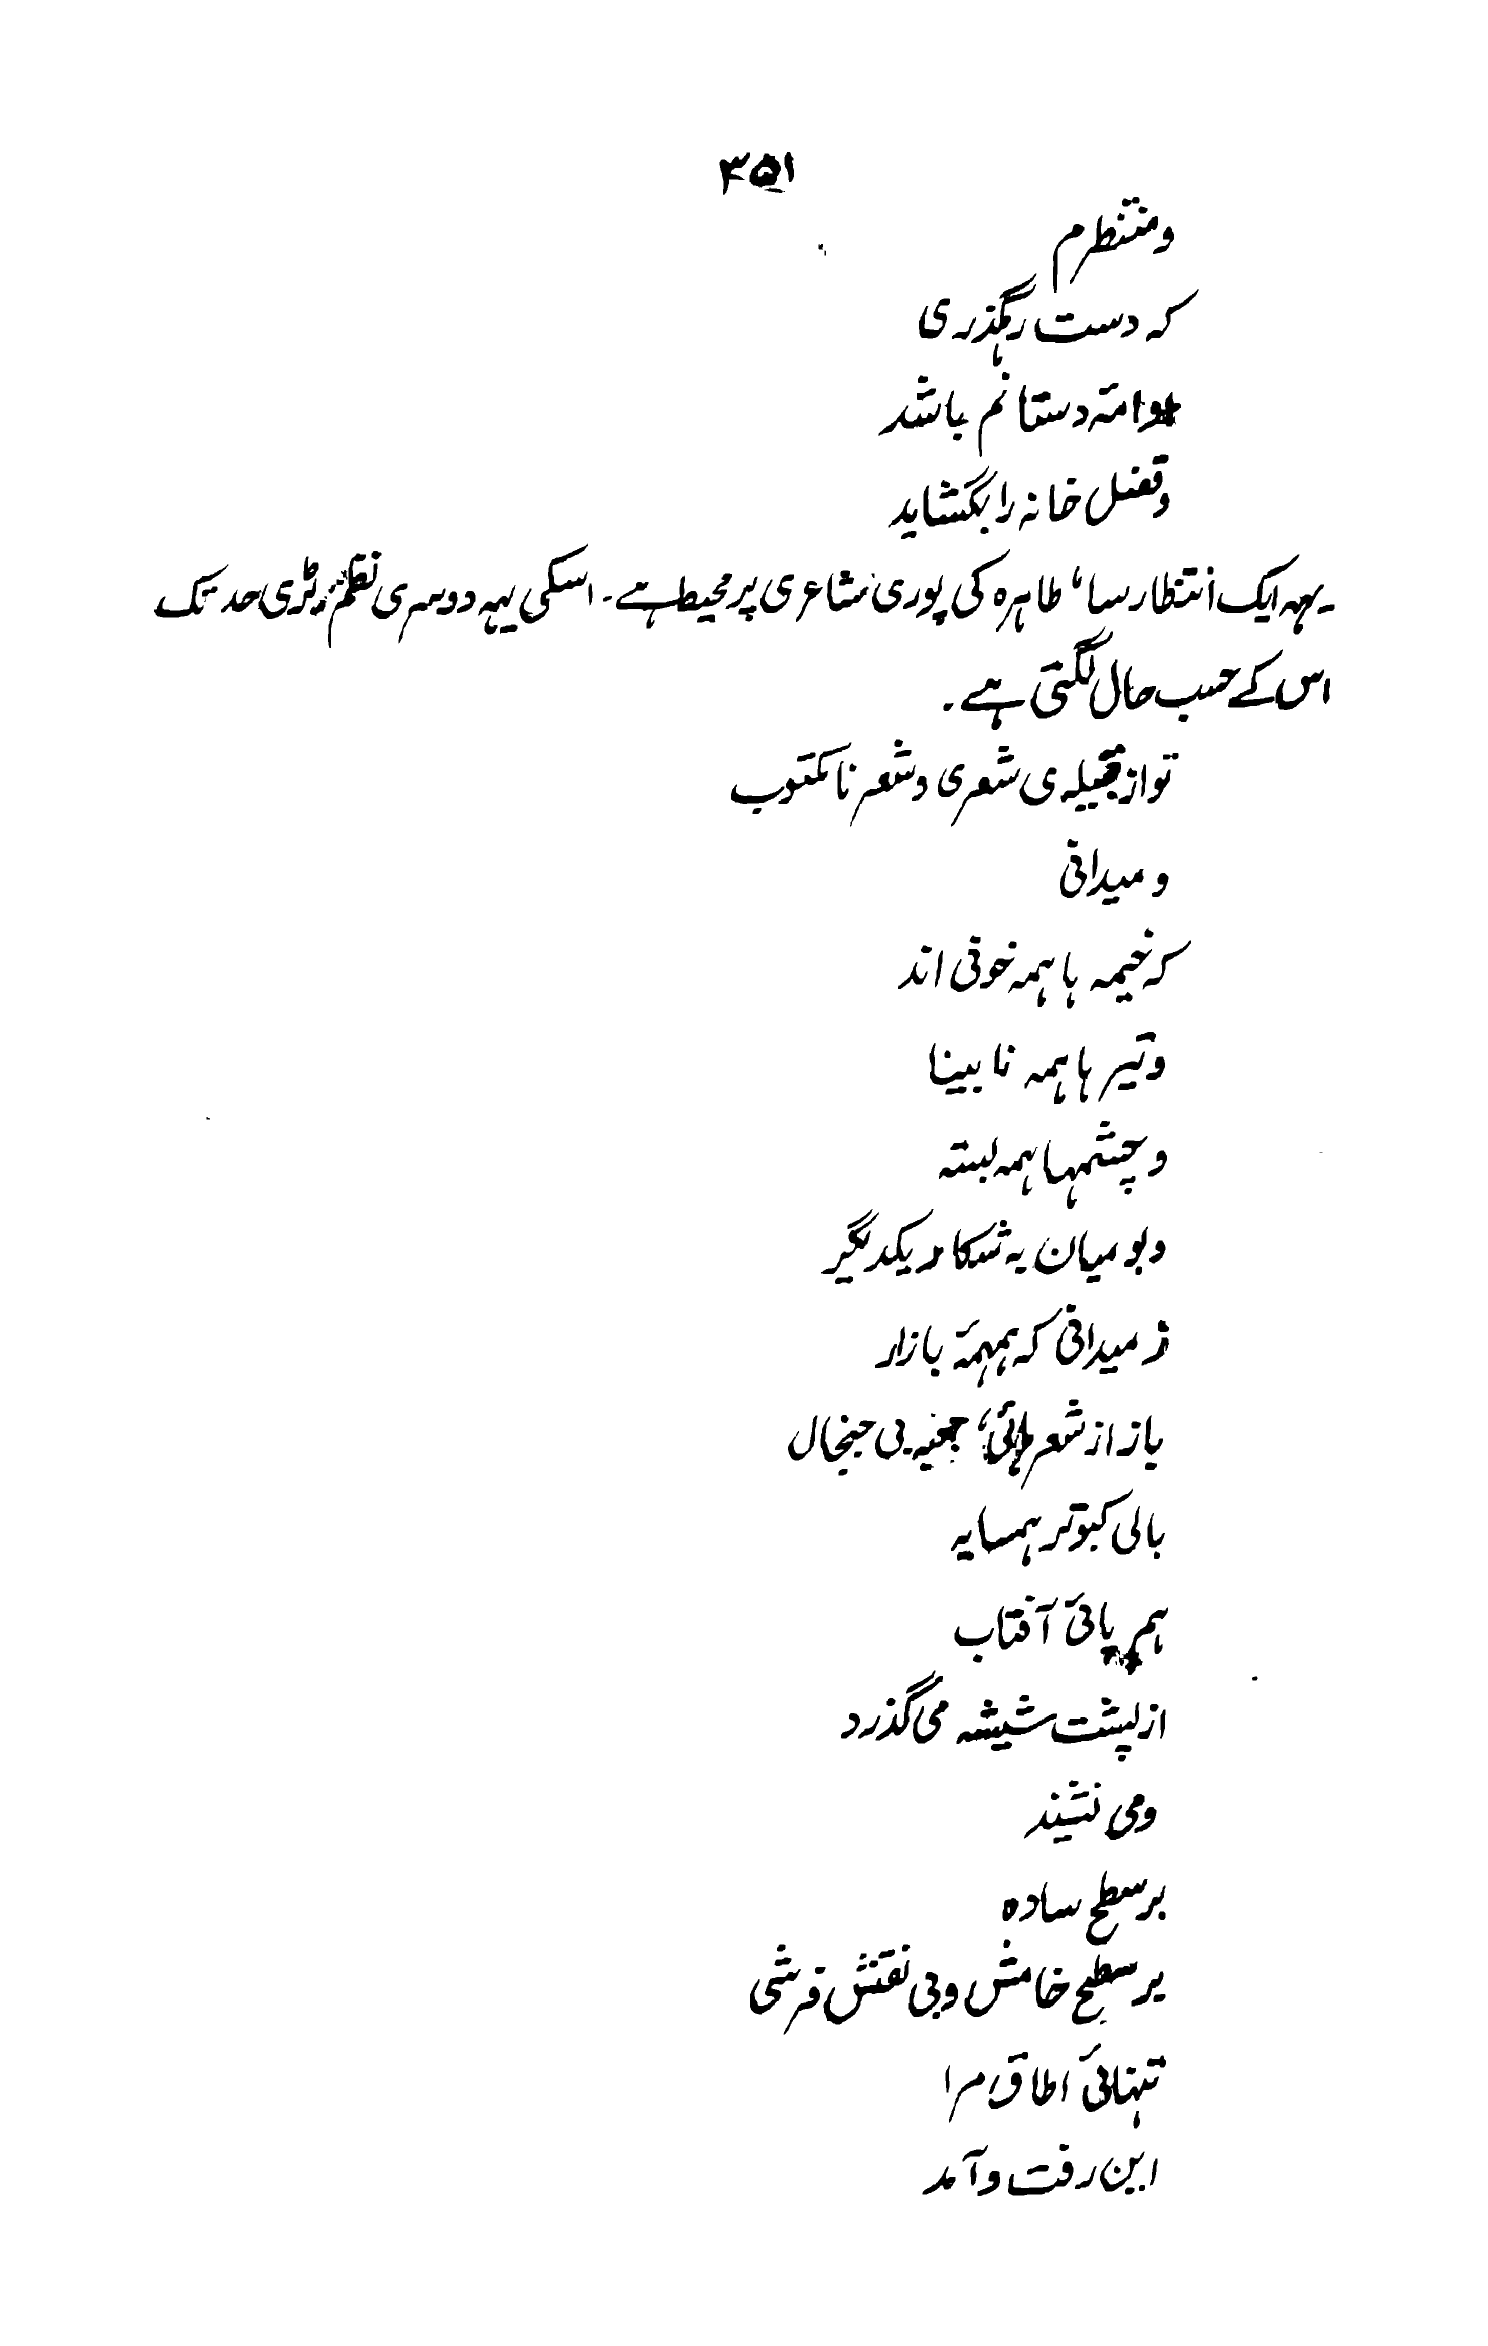 ۳۵۱
و منتظرم
کہ دست رہگذری
ادامۂ دستانم باشد
وقفل خانہ را بگشاید
یہہ ایک انتظار سا، طاہرہ کی پوری شاعری پر محیط ہے۔ اسکی یہہ دوسری نظم بڑی حد تک
اس کے حسب حال لگتی ہے۔
تو از قبیلہ ی شعری و شعر نا مکتوب
و میدانی
کہ خیمہ ہا ہمہ خونی اند
و تیر ہا ہمہ نا بینا
و چشمہا ہمہ بستہ
و بومیان بہ شکار یکدیگر
ز میدانی کہ ہمہمۂ بازار
باز از شعر ہائی، بی جنجال
بالی کبوتر ہمسایہ
ہم پائ آفتاب
از پشت شیشہ می گذرد
و می نشیند
بر سطح سادہ
بر سطح خامش و بی نقش فرشی
تنہائ اطاق مرا
این رفت و آمد